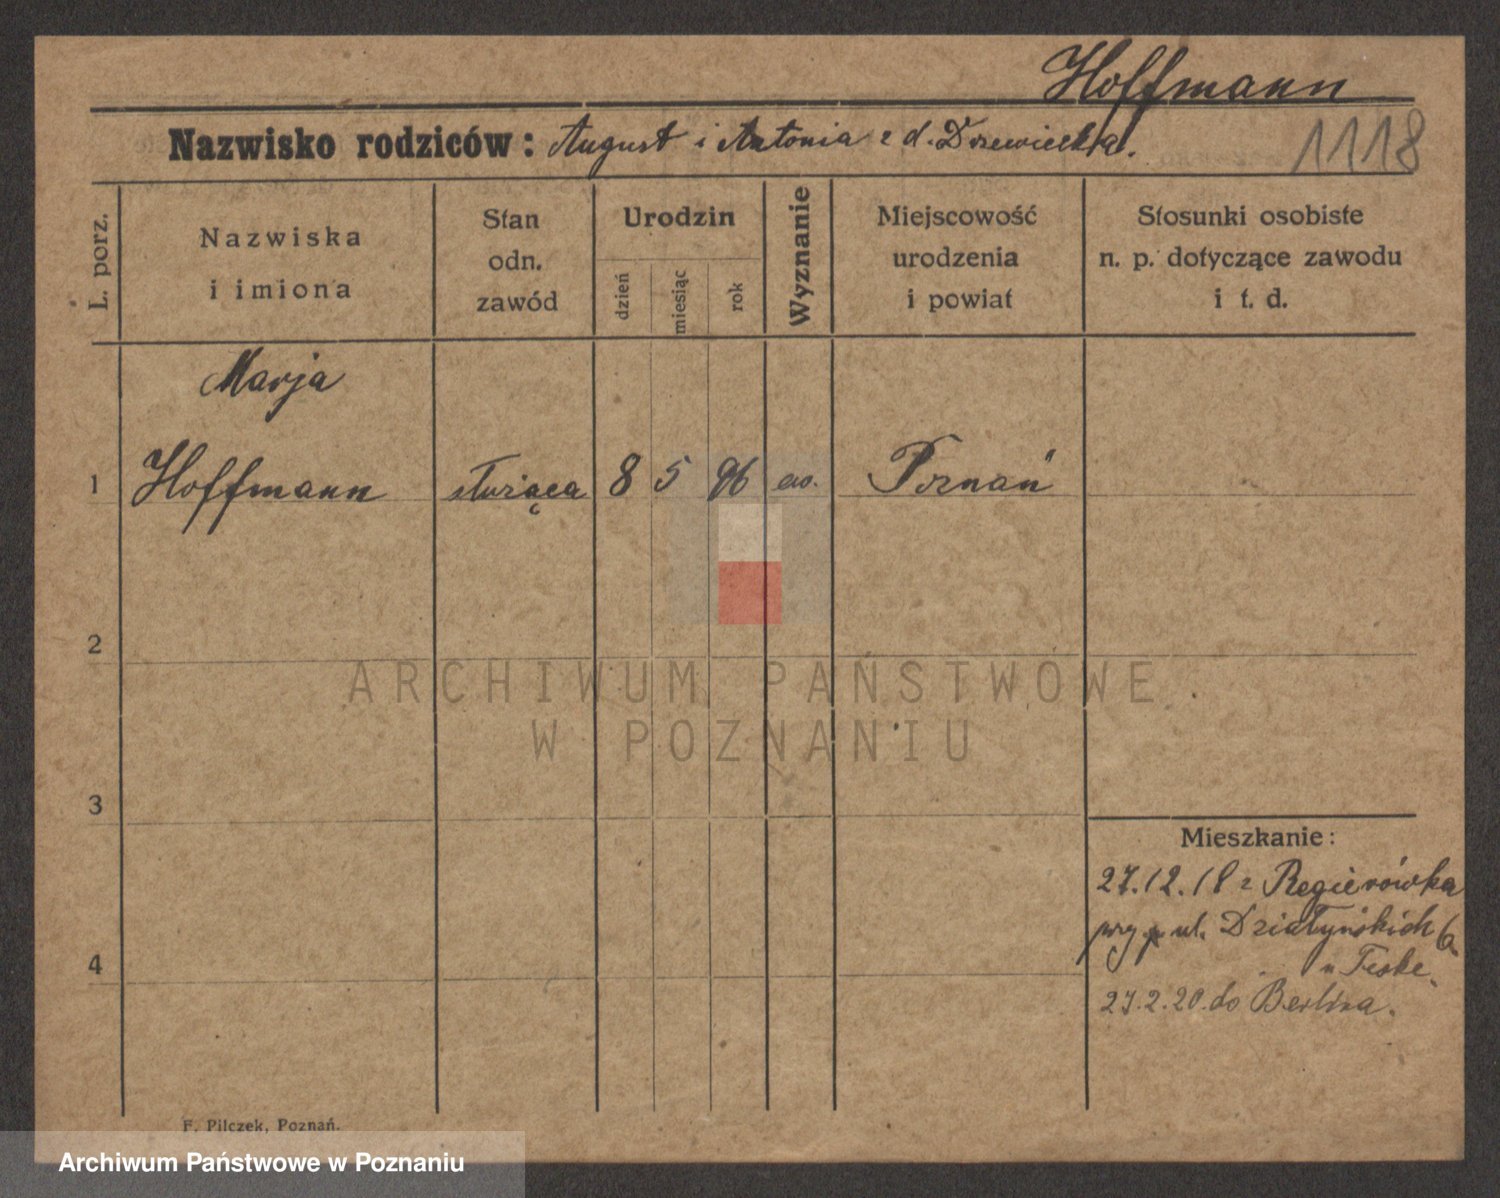 Hoffmann
Nazwisko rodziców: August i Antonia z d. Drzewiecka.
1118
L. porz.
Nazwiska
i imiona
Stan
odn.
zawód
Urodzin
dzień
miesiąc
rok
Wyznanie
Miejscowość
urodzenia
i powiat
Stosunki osobiste
n. p. dotyczące zawodu
i t. d.
Marja
1 Hoffmann służąca 8 5 96 ew. Poznań
2
ARCHIWUM PAŃSTWOWE
W POZNANIU
3
Mieszkanie:
27.12.18 z Regierówka
przy ul. Działyńskich 6
u Teske.
4
27.2.20. do Berlina.
F. Pilczek, Poznań.
Archiwum Państwowe w Poznaniu